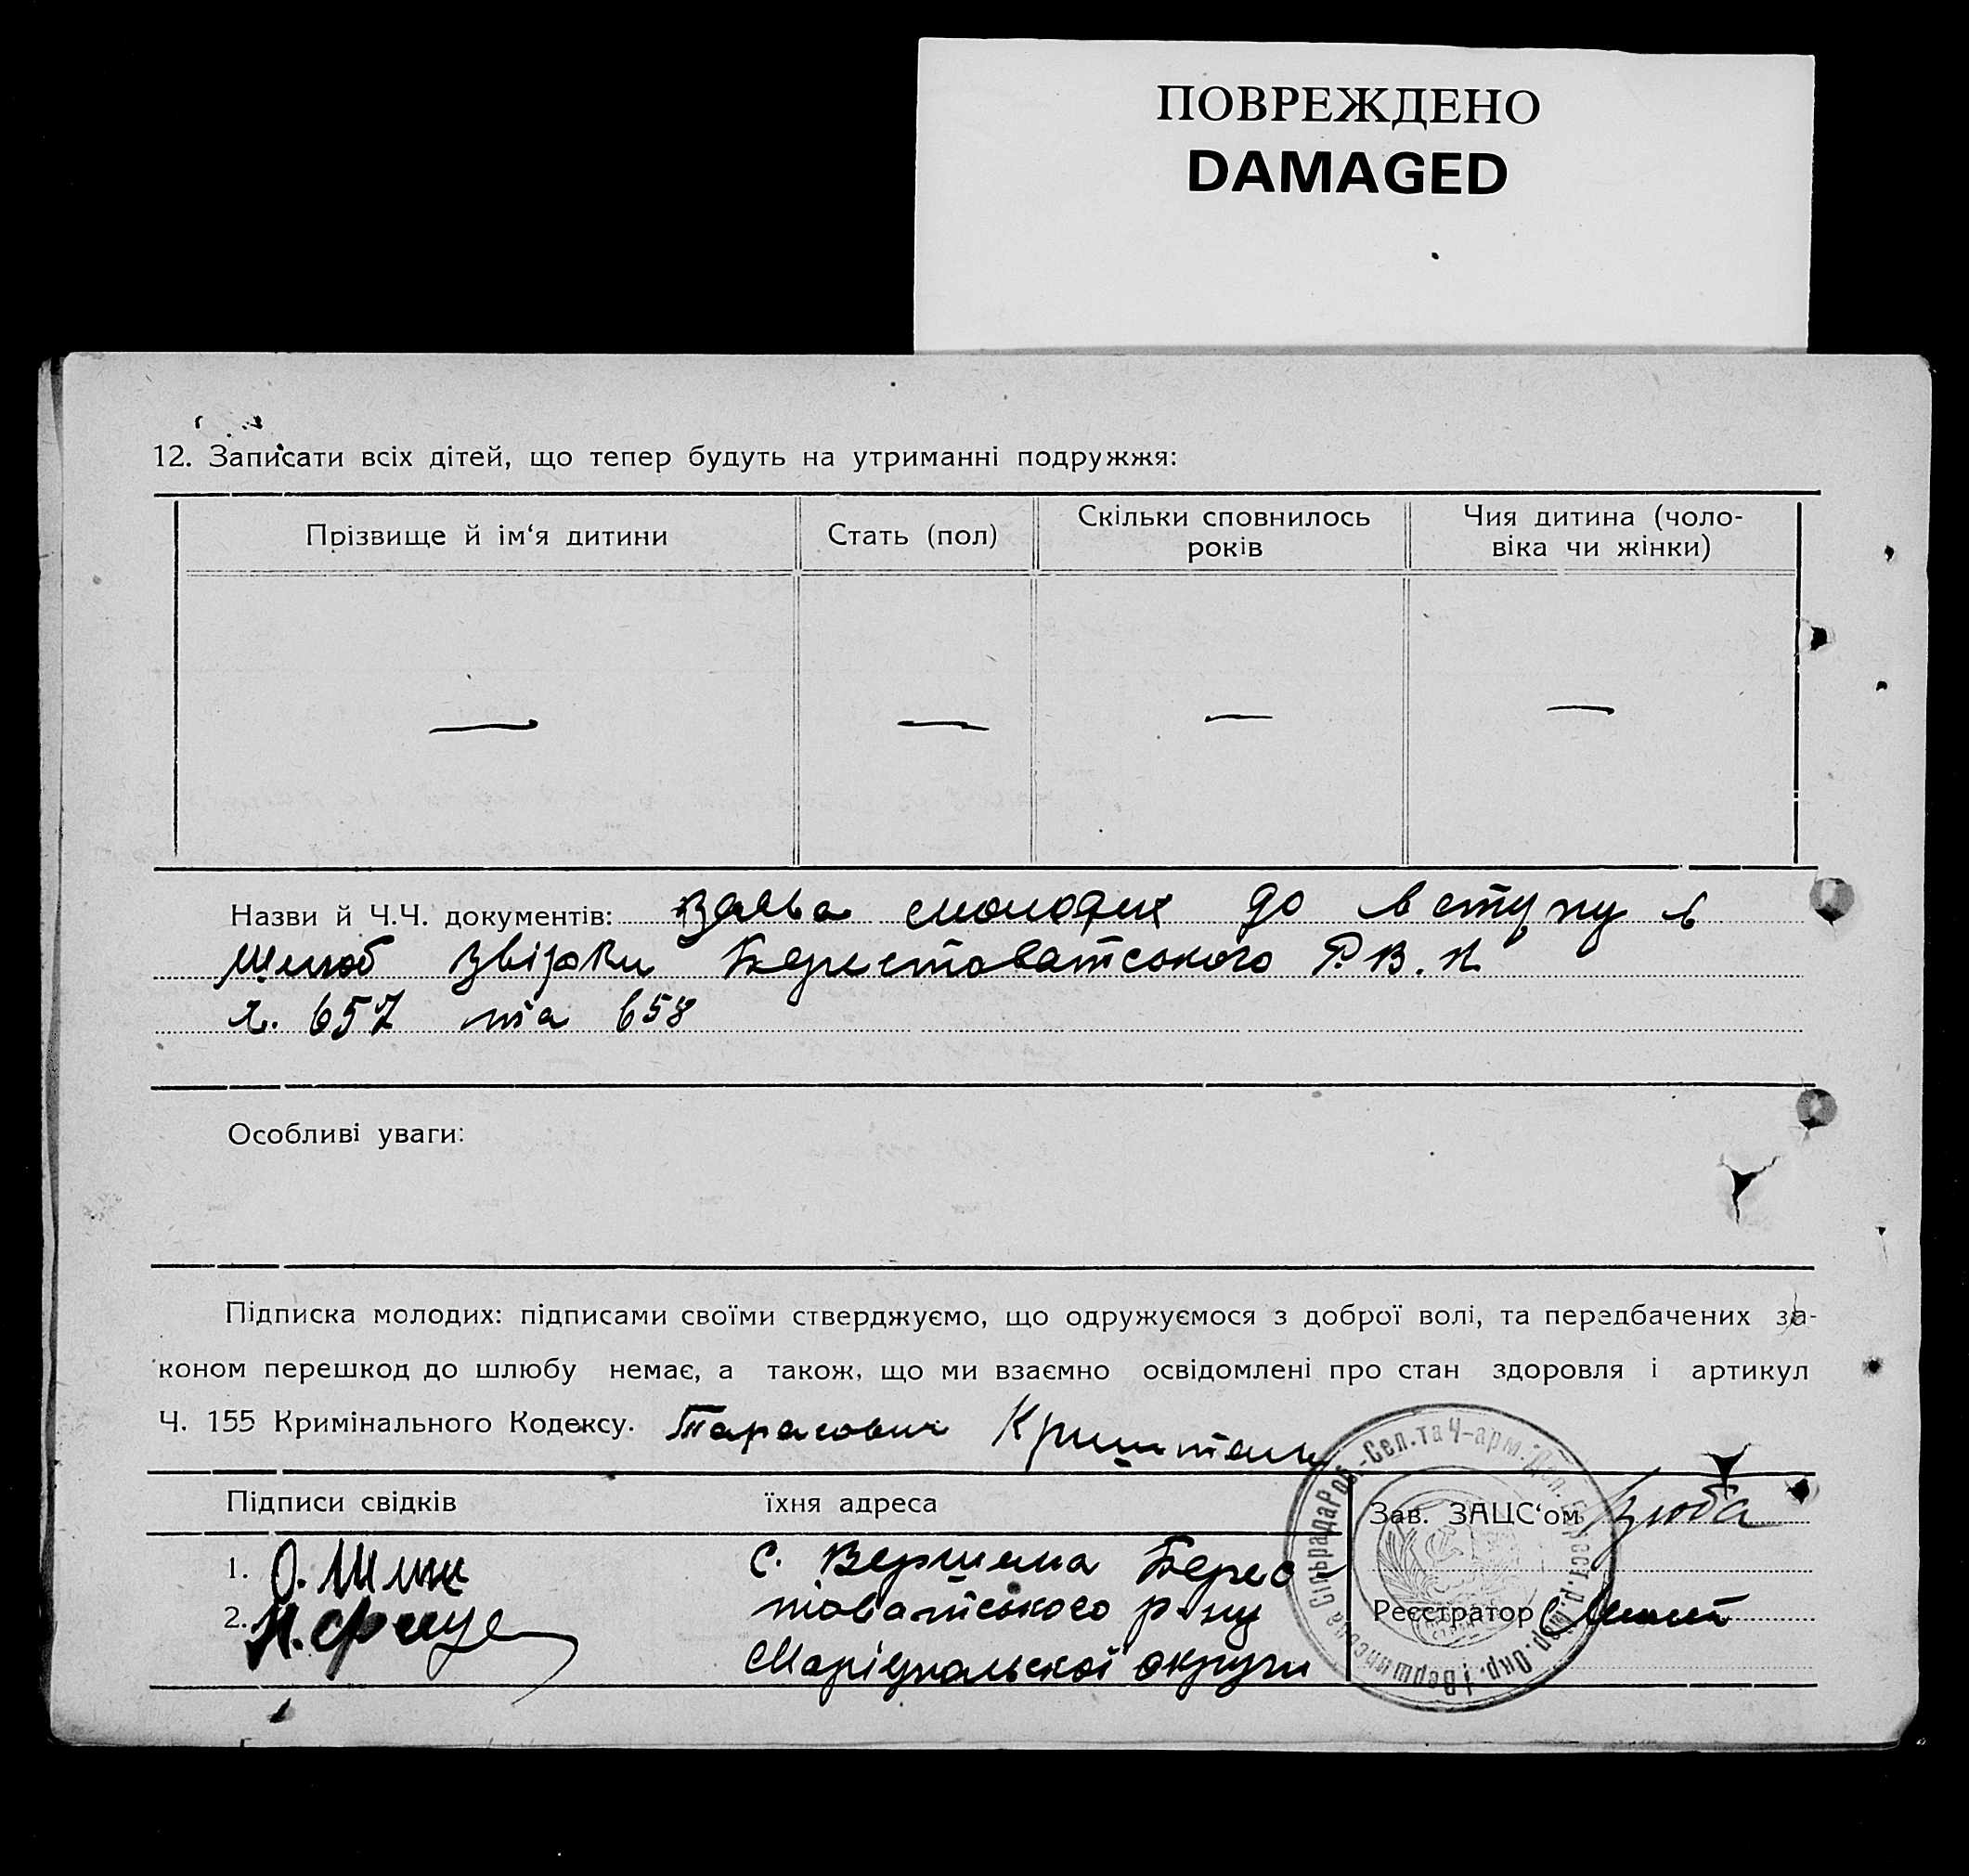 ПОВРЕЖДЕНО
DAMAGED
12. Записати всіх дітей, що тепер будуть на утриманні подружжя:
Прізвище й ім‘я дитини
Стать (пол)
Скільки сповнилось
років
Чия дитина (чоло-
віка чи жінки)
—
—
—
—
Назви й Ч.Ч. документів: Заява молодих до вступу в
шлюб звірки Берестоватського Р.В.К
ч. 657 та 658
Особливі уваги:
Підписка молодих: підписами своїми стверджуємо, що одружуємося з доброї волі, та передбачених за-
коном перешкод до шлюбу немає, а також, що ми взаємно освідомлені про стан здоров‘я і артикул
Ч. 155 Кримінального Кодексу. Тарасович
Підписи свідків
їхня адреса
Зав. ЗАЦС‘ом
1. О.
с. Вершина Берес
2.
товатського р-ну
Реєстратор
Маріупольської округи
СільрадаРоб.-Сел.та Ч-арм.Деп.